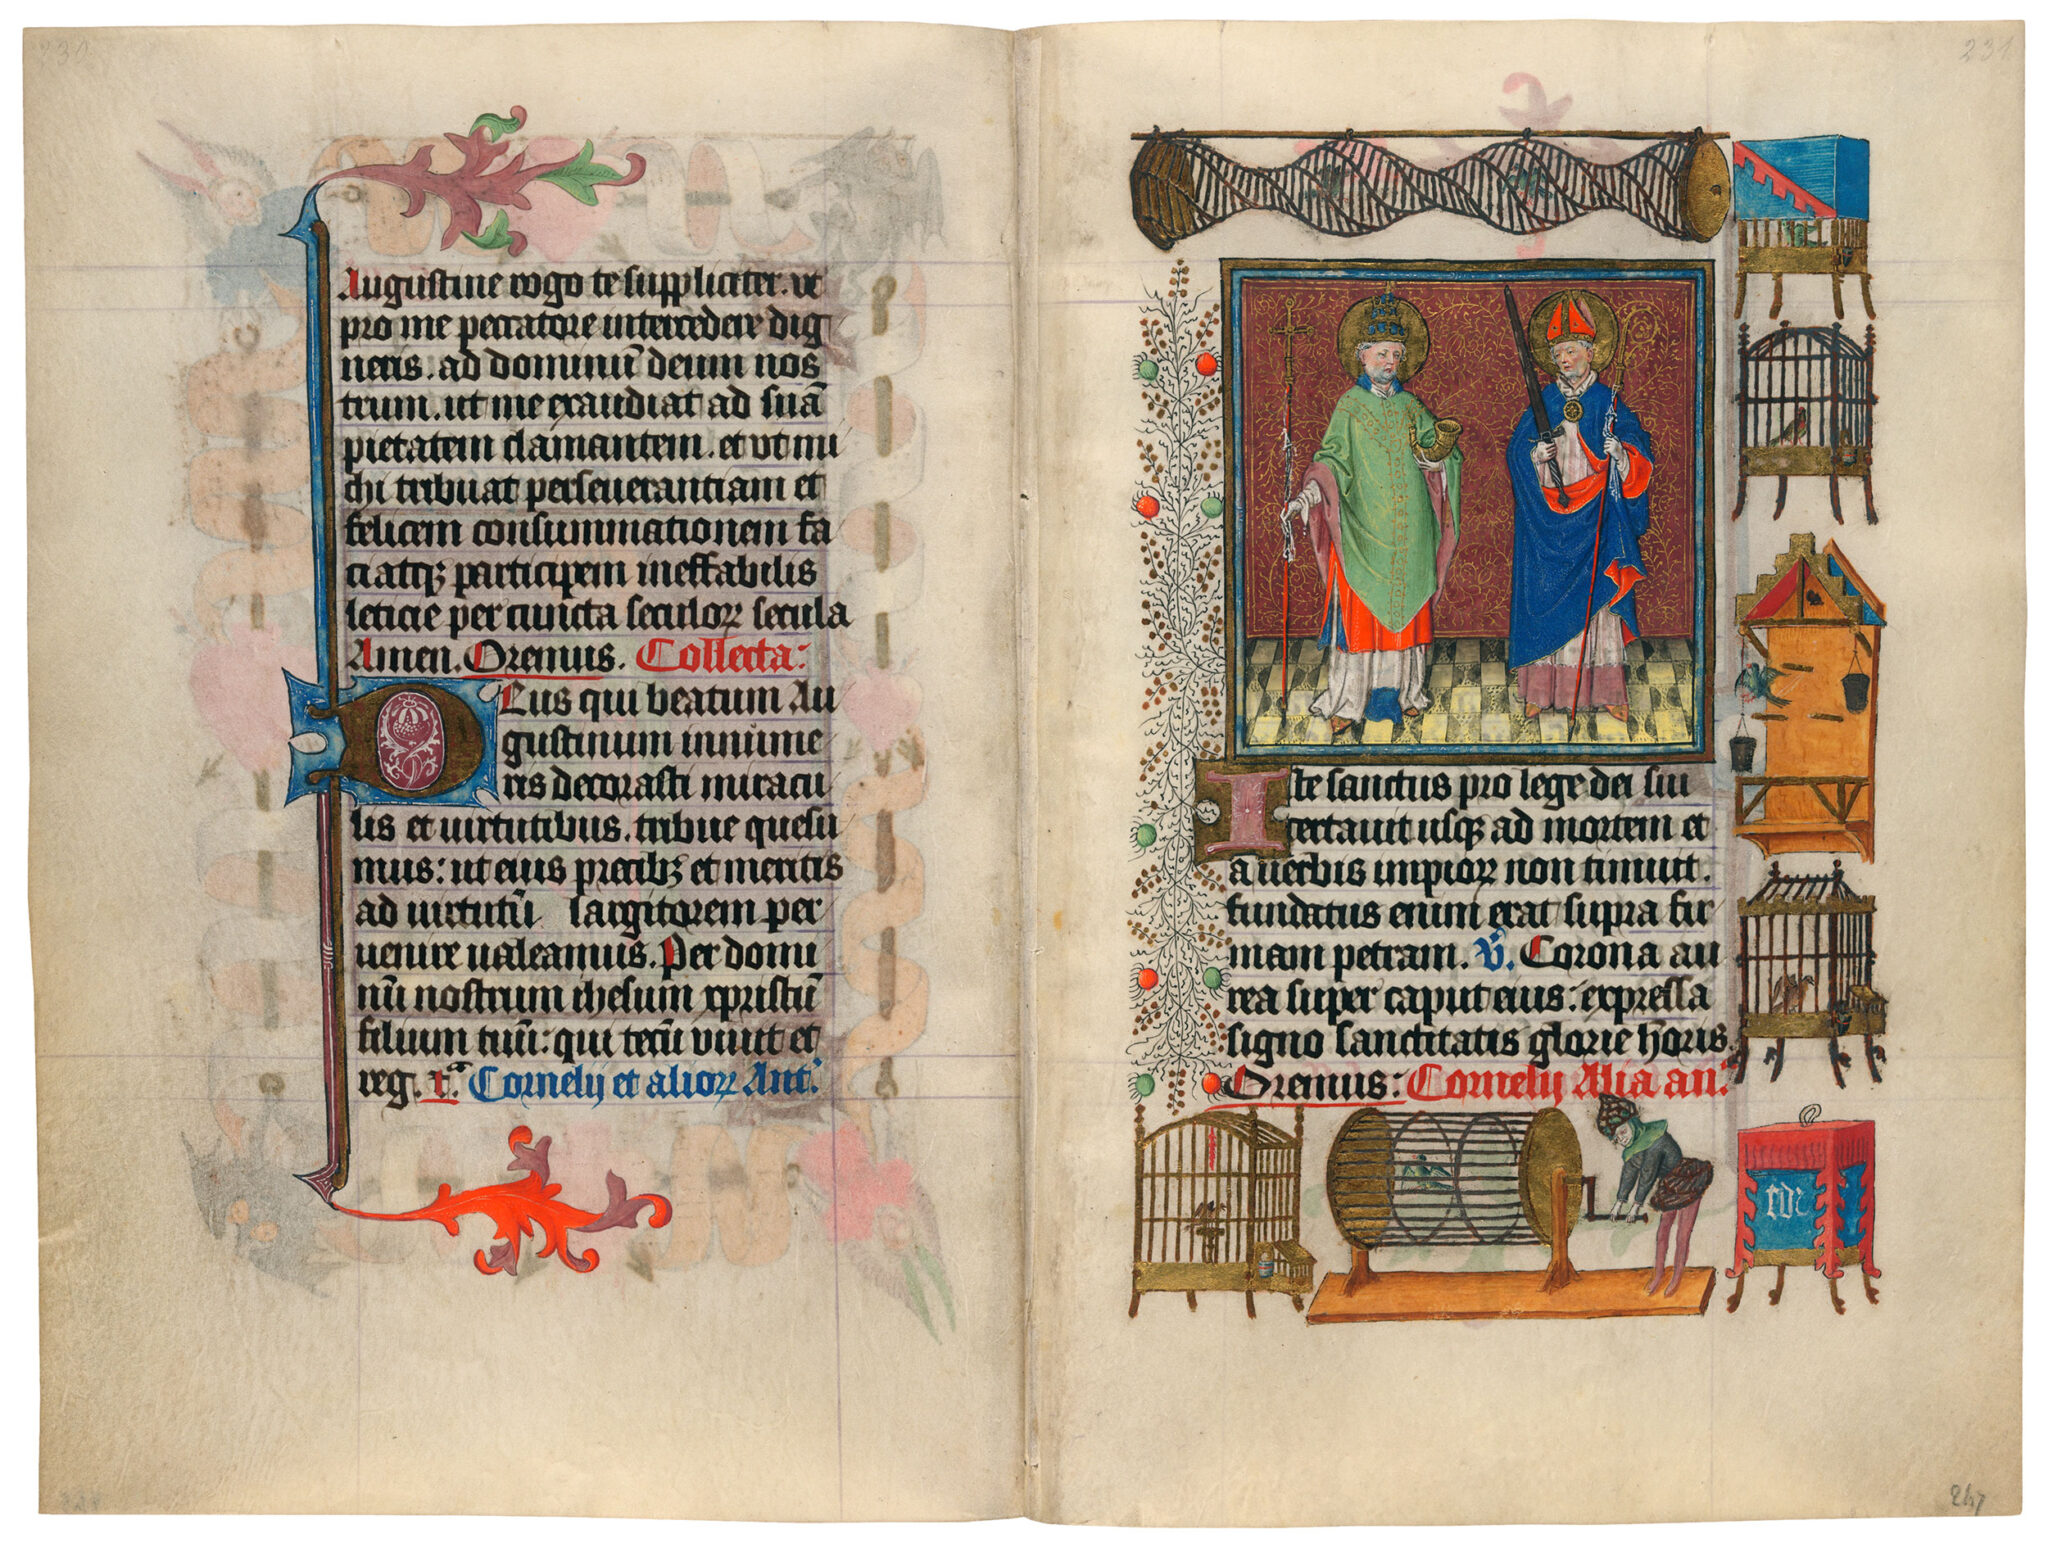 230
Augustine rogo te suppliciter. vt
pro me peccatore intercedere dig
neris. ad dominū deum nos
trum. ut me exaudiat ad suā
pietatem clamantem. et vt mi
chi tribuat perseuerantiam et
felicem consummationem fa
ciatqꝫ participem ineffabilis
leticie per cuncta seculoꝝ secula
Amen. Oremus. Collecta:
DEus qui beatum Au
gustinum innūme
ris decorasti miracu
lis et uirtutibus. tribue quesu
mus: ut eius precibꝫ et meritis
ad uirtutū largitorem per
uenire ualeamus. Per domi
nū nostrum ihesum xpristū
filium tuū: qui tecū viuit et
reg. Cornelij et alioꝝ Ant.
231
Iste sanctus pro lege dei sui
certauit usqꝫ ad mortem et
a uerbis impioꝝ non timuit.
fundatus enim erat supra fir
mam petram. V. Corona au
rea super caput eius: expressa
signo sanctitatis glorie honoris
Oremus: Cornelij Alia an.
247